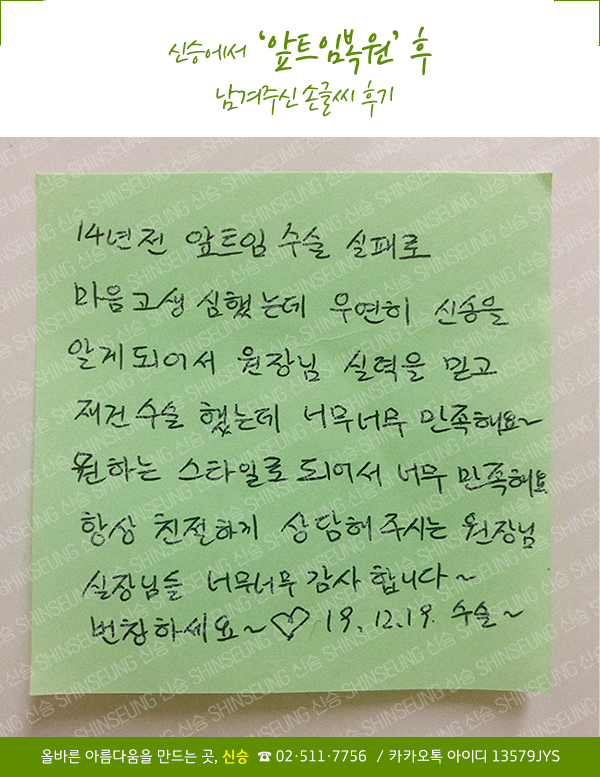 신승에서 '앞트임복원' 후
남겨주신 손글씨 후기
14년전 앞트임 수술 실패로
마음고생 심했는데 우연히 신승을
알게되어서 원장님 실력을 믿고
재건수술 했는데 너무너무 만족해요~
원하는 스타일로 되어서 너무 만족해요
항상 친절하게 상담해주시는 원장님
실장님들 너무너무 감사합니다~
번창하세요~♡ 19.12.19. 수술~
올바른 아름다움을 만드는 곳, 신승 ☎ 02·511·7756 / 카카오톡 아이디 13579JYS